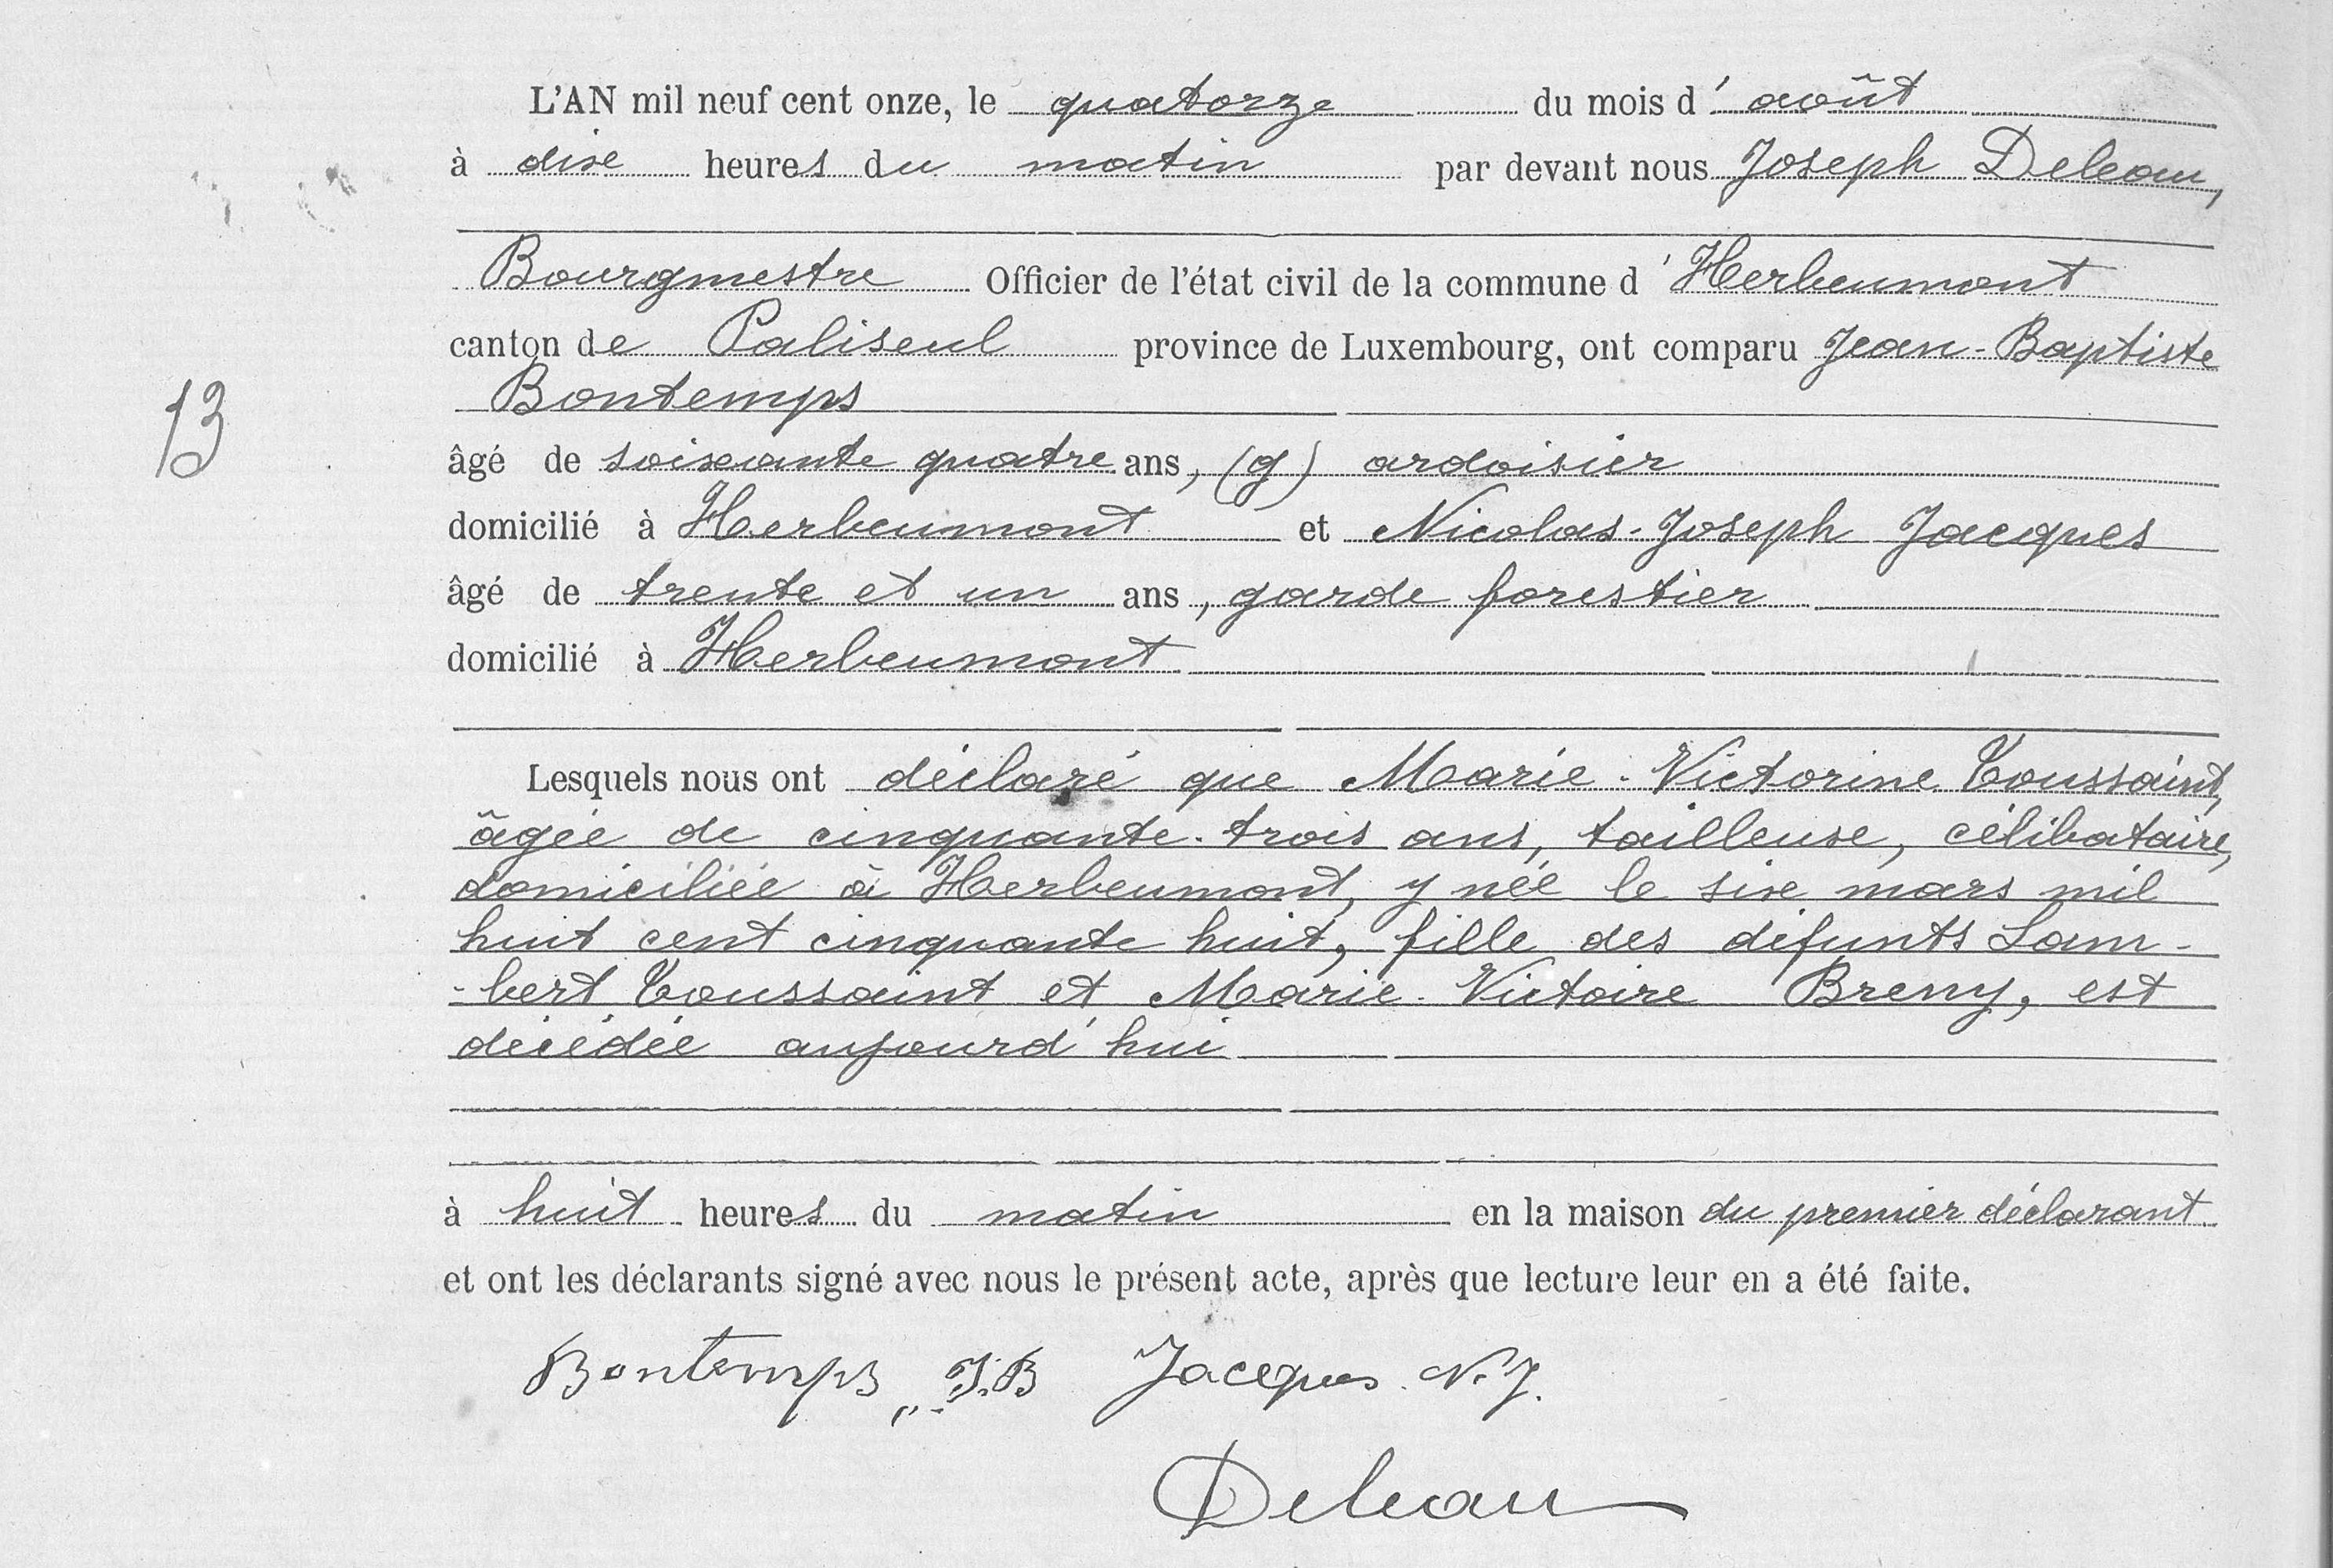 L'AN mil neuf cent onze, le quatorze du mois d'août
à dix heures du matin par devant nous Joseph Deleau,
Bourgmestre Officier de l'état civil de la commune d'Herbeumont
canton de Paliseul province de Luxembourg, ont comparu Jean-Baptiste
Bontemps
13
âgé de soixante quatre ans, (g) ardoisier
domicilié à Herbeumont et Nicolas-Joseph Jacques
âgé de trente et un ans, garde forestier
domicilié à Herbeumont
Lesquels nous ont déclaré que Marie-Victorine Toussaint,
âgée de cinquante-trois ans, tailleuse, célibataire,
domiciliée à Herbeumont, y née le six mars mil
huit cent cinquante huit, fille des défunts Lam-
-bert Toussaint et Marie-Victoire Breny, est
décédée aujourd'hui
à huit heures du matin en la maison du premier déclarant
et ont les déclarants signé avec nous le présent acte, après que lecture leur en a été faite.
Bontemps J.B Jacques. N.J.
Deleau